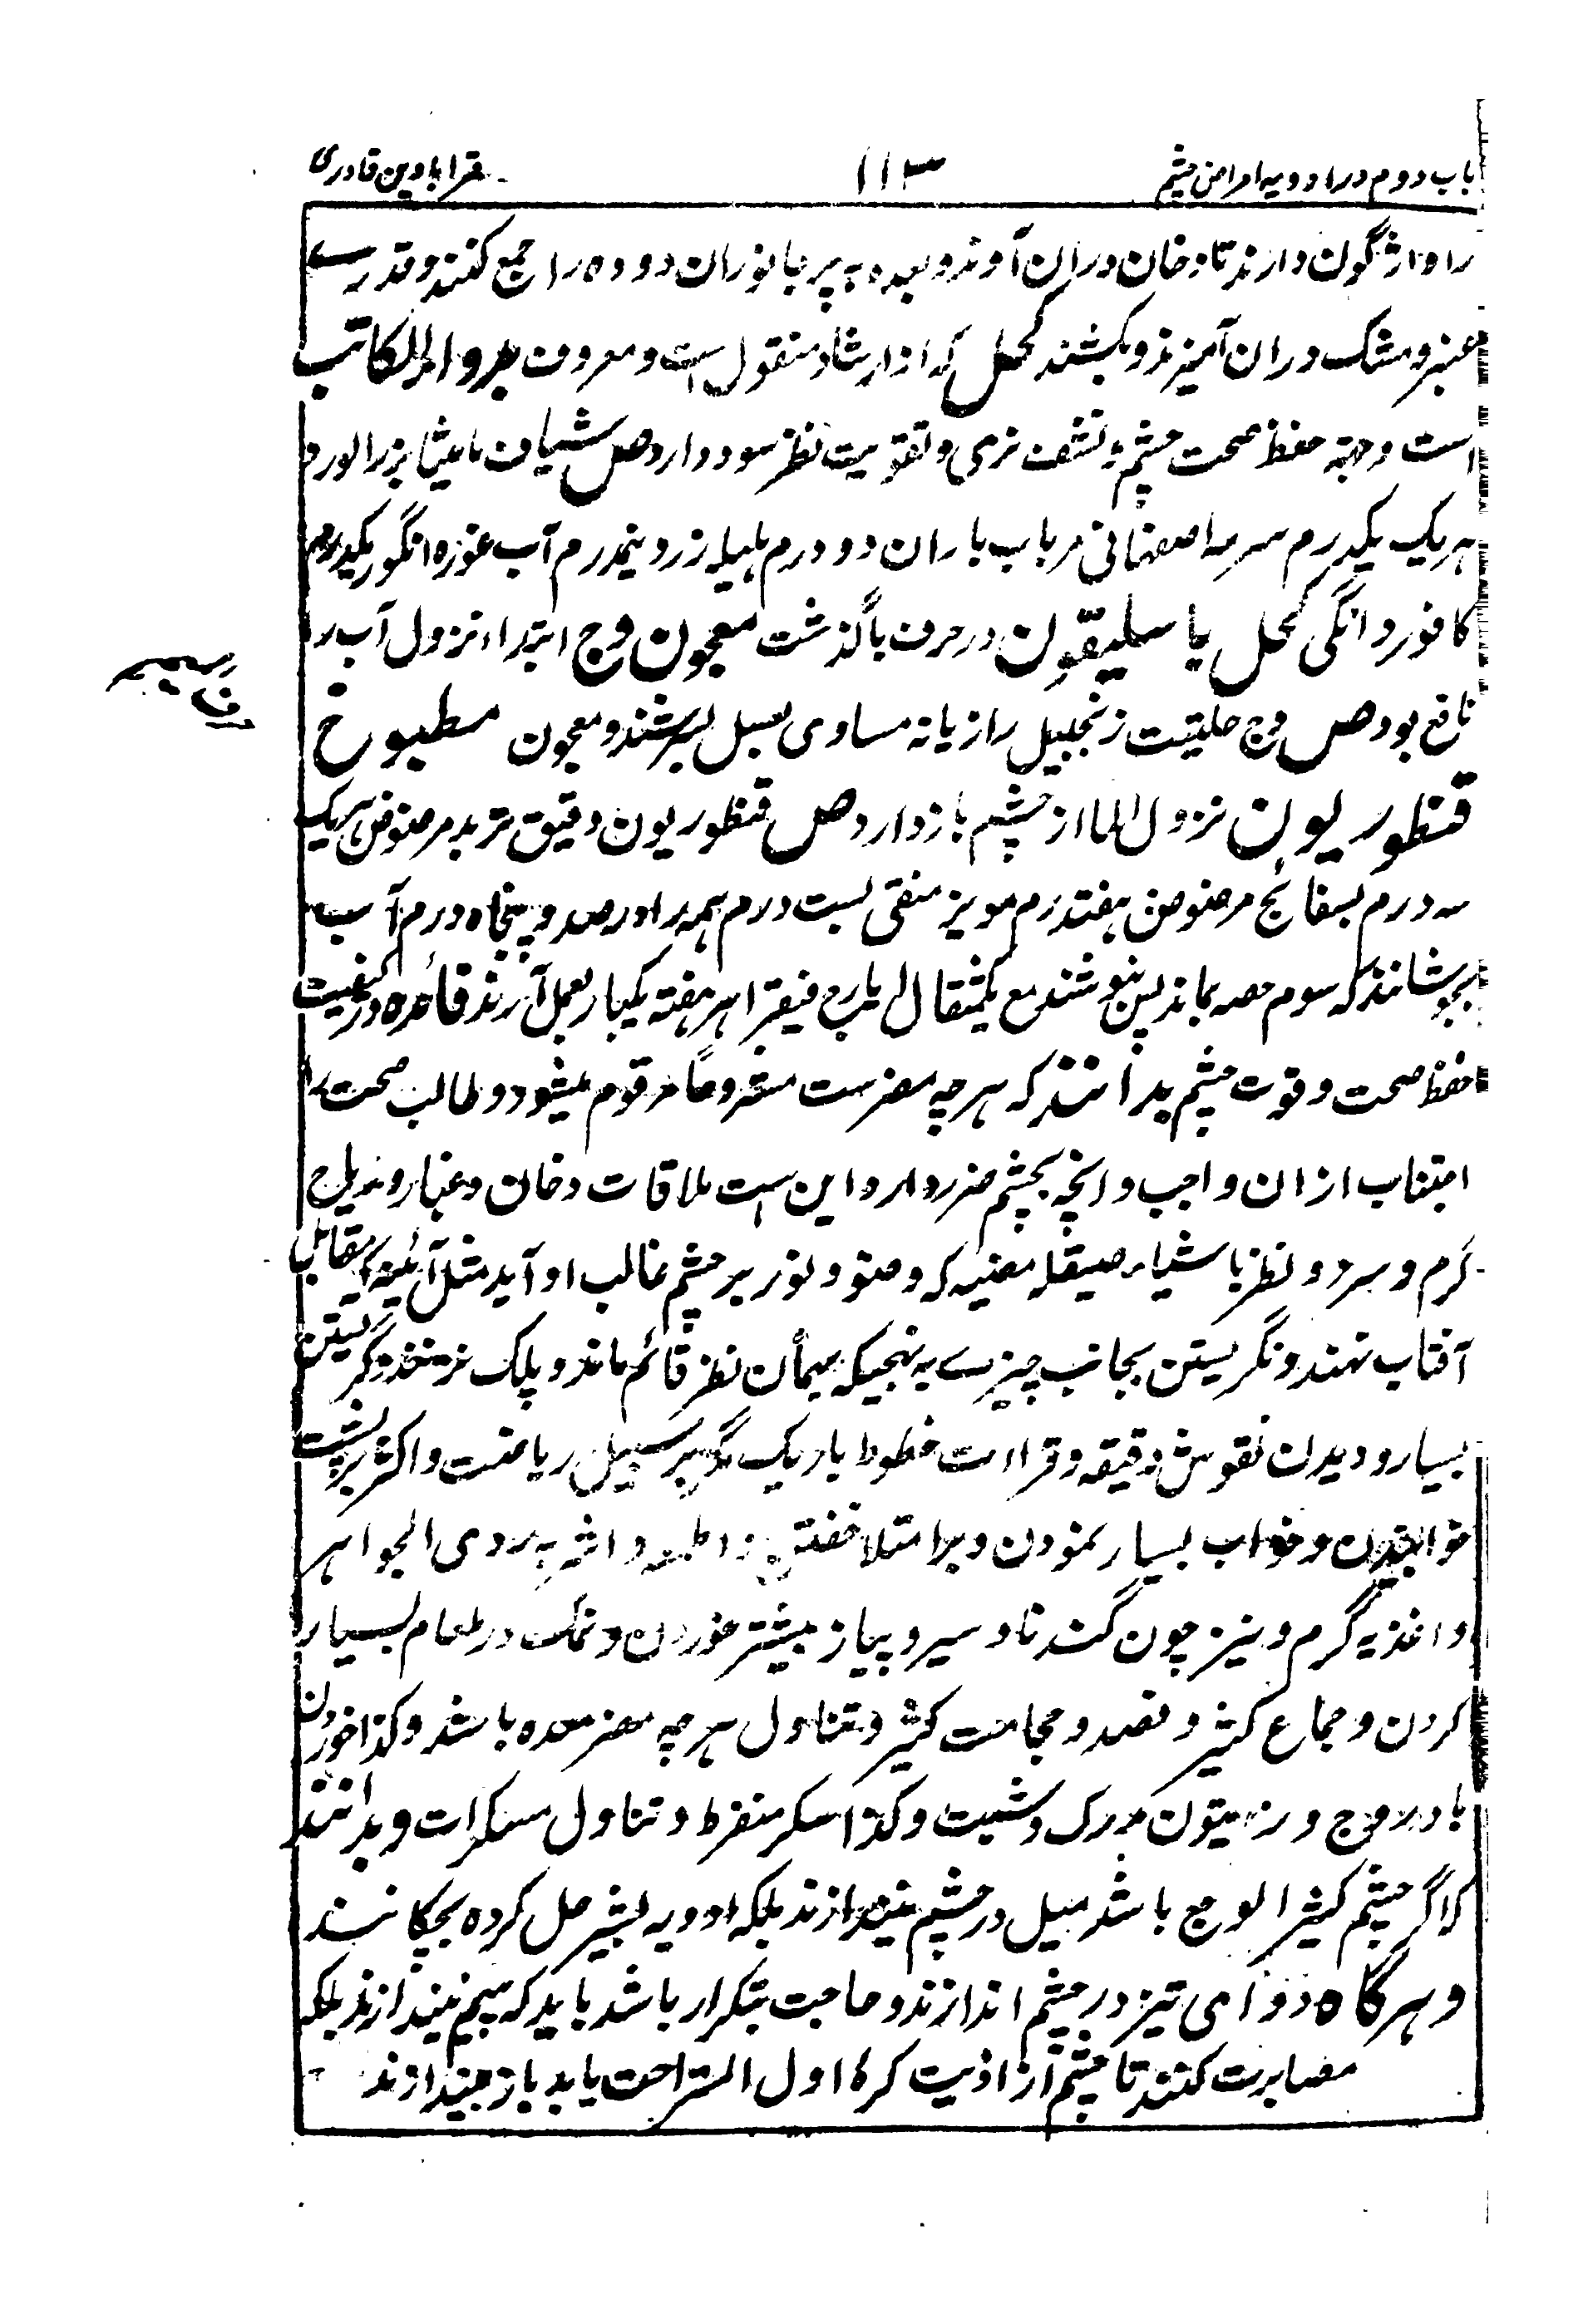 باب دوم در ادویه امراض چشم
۱۱۳
قرابادین قادری
را واژگون دارند تا دخان دران آوند و بعده به پر جانوران دوده را جمع کنند و قدرے
عنبر و مشک دران آمیزند و بکشند کحل که از ارشاد منقول است و معروف بدواء الکاتب
است وجهة حفظ صحت چشم و نشف نزمی و تقویت نظر سود دارد ص شیاف مامیثا بزر الورد
هریک یکدرم سرمه اصفهانی مرباب باران دو درم هلیله زرد نیمدرم آب غوزه انگور یکدرم
کافور دانگی کحل باسلیقون در حرف با گذشت معجون وج ابتداء نزول آب را
نافع بود ص وج حلتیت زنجبیل رازیانه مساوی بعسل بسرشند و معجون مطبوخ
قنطوریون نزول الما از چشم باز دارد ص قنطوریون دقیق تربد مرضوض هریک
سه درم بسفائج مرضوض هفتدرم مویز منقی بست درم همه را در صد و پنجاه درم آب
بجوشانند که سوم حصه بماند پس بنوشند مع یکمثقال ایارج فیقرا هر هفته یکبار بعمل آرند فائده در کیفیت
حفظ صحت و قوت چشم بدانند که هر چه مضرست مشروحاً مرقوم میشود و طالب صحت را
اجتناب ازان واجب و آنچه بچشم ضرر دارد این است ملاقات دخان و غبار و ریاح
گرم و سرد و نظر باشیاء صیقله مضیه که وضو و نور بر چشم غالب او آید مثل آئینه که بمقابل
آفتاب نهند و نگریستن بجانب چیزے به نهجیکه بهمان نظر قائم ماند و پلک نزنند و گریستن
بسیار و دیدن نقوش دقیقه و قراءت خطوط باریک مگر بر سبیل ریاضت و اکثر بر پشت
خوابیدن و خواب بسیار نمودن و بر امتلا خفتن و اطعمه و اشربه ردی الجواهر
و اغذیه گرم و نیز چون گندنا و سیر و پیاز بیشتر خوردن و نمک در طعام بسیار
کردن و جماع کثیر و فصد و حجامت کثیر و تناول هر چه مضر معده باشد و کذا خوردن
بادروج و زیتون مدرک و شبت و کذا سکر مفرط و تناول مسکرات و بدانند
کاگر چشم کثیر الوجع باشد میل در چشم نیندازند بلکه ادویه بشیر حل کرده بچکانند
و هر گاه دوای تیز در چشم اندازند و حاجت بتکرار باشد باید که پیهم نیندازند بلکه
مصابرت کنند تا چشم از اذیت کرة اول استراحت یابد باز بیندازند